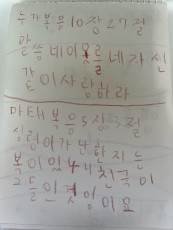 누가복음10장27절
말씀네이웃을네가신
같이사랑하라
마태복음5장3절
심령이가난한지는
복이있나니천국이
그들의것임이요